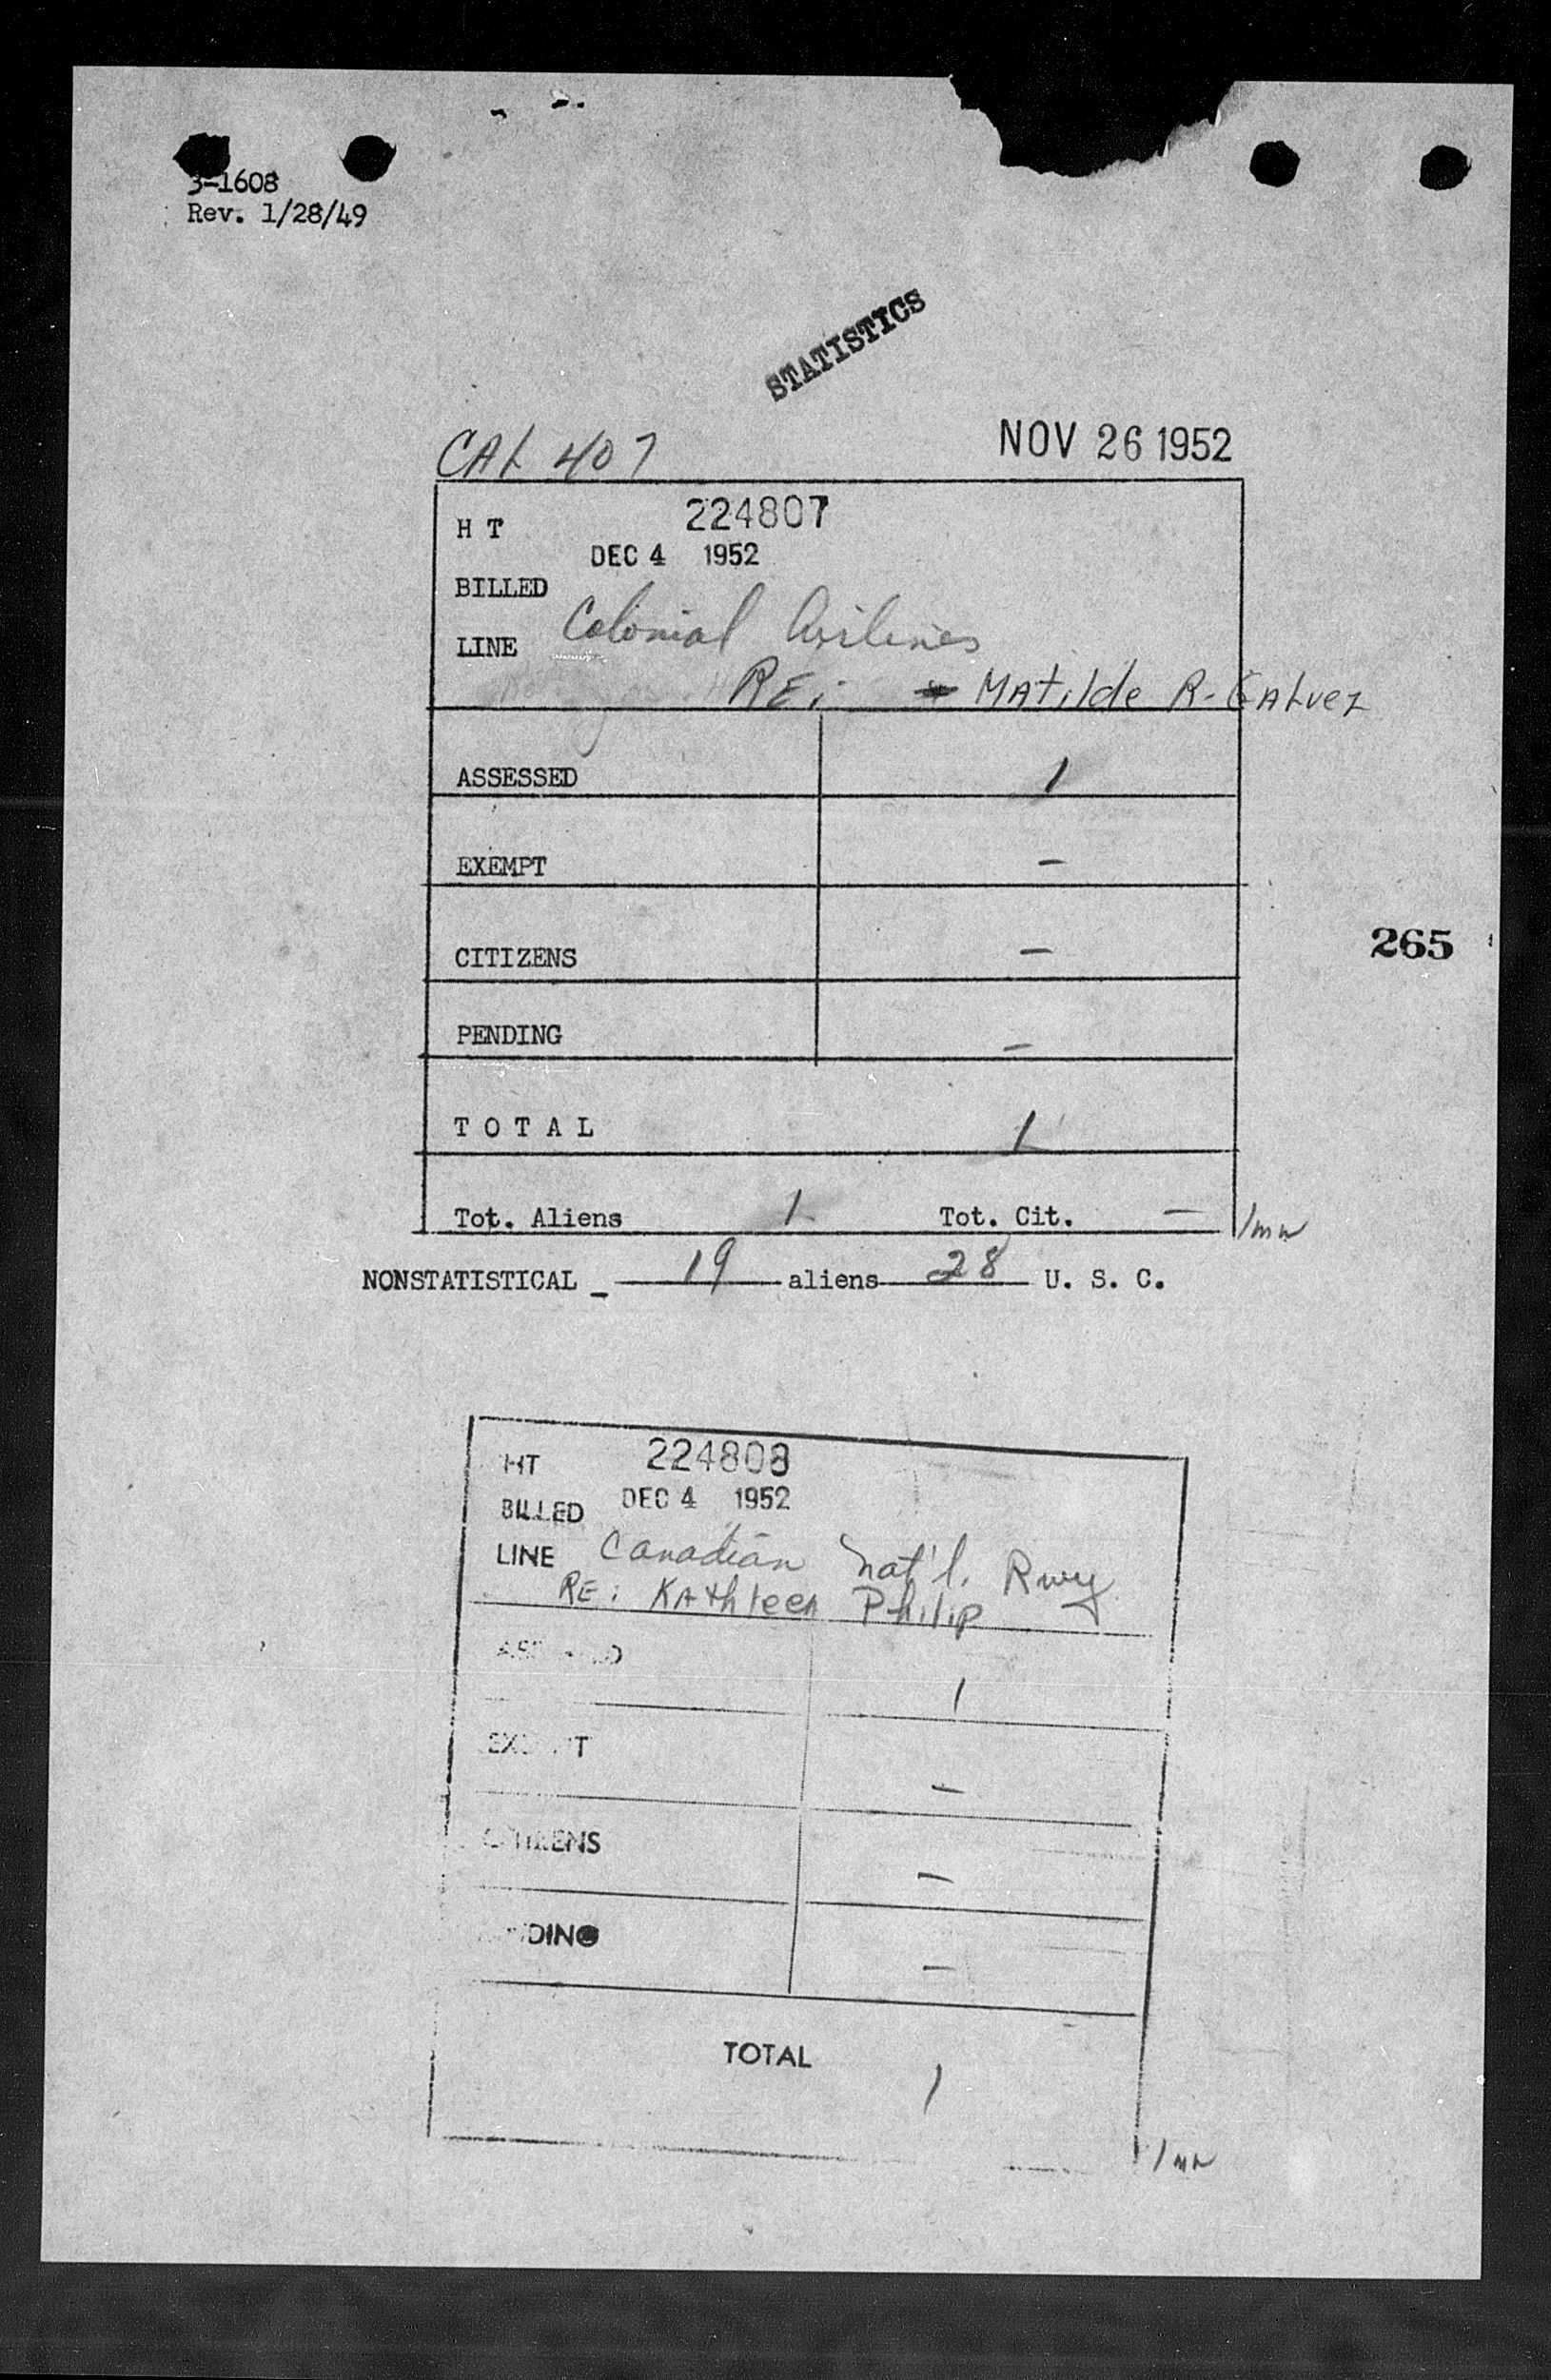 3-1608
Rev. 1/28/49
STATISTICS
CAL 407
NOV 26 1952
H T 224807
DEC 4 1952
BILLED
LINE Colonial Airlines
RE: Matilde R. Galvez
ASSESSED 1
EXEMPT –
CITIZENS –
265
PENDING –
T O T A L 1
Tot. Aliens 1 Tot. Cit. –
NONSTATISTICAL 19 aliens 28 U. S. C.
HT 224808
BILLED DEC 4 1952
LINE Canadian Nat'l. Rwy
RE: Kathleen Philip
1
–
–
–
TOTAL
1